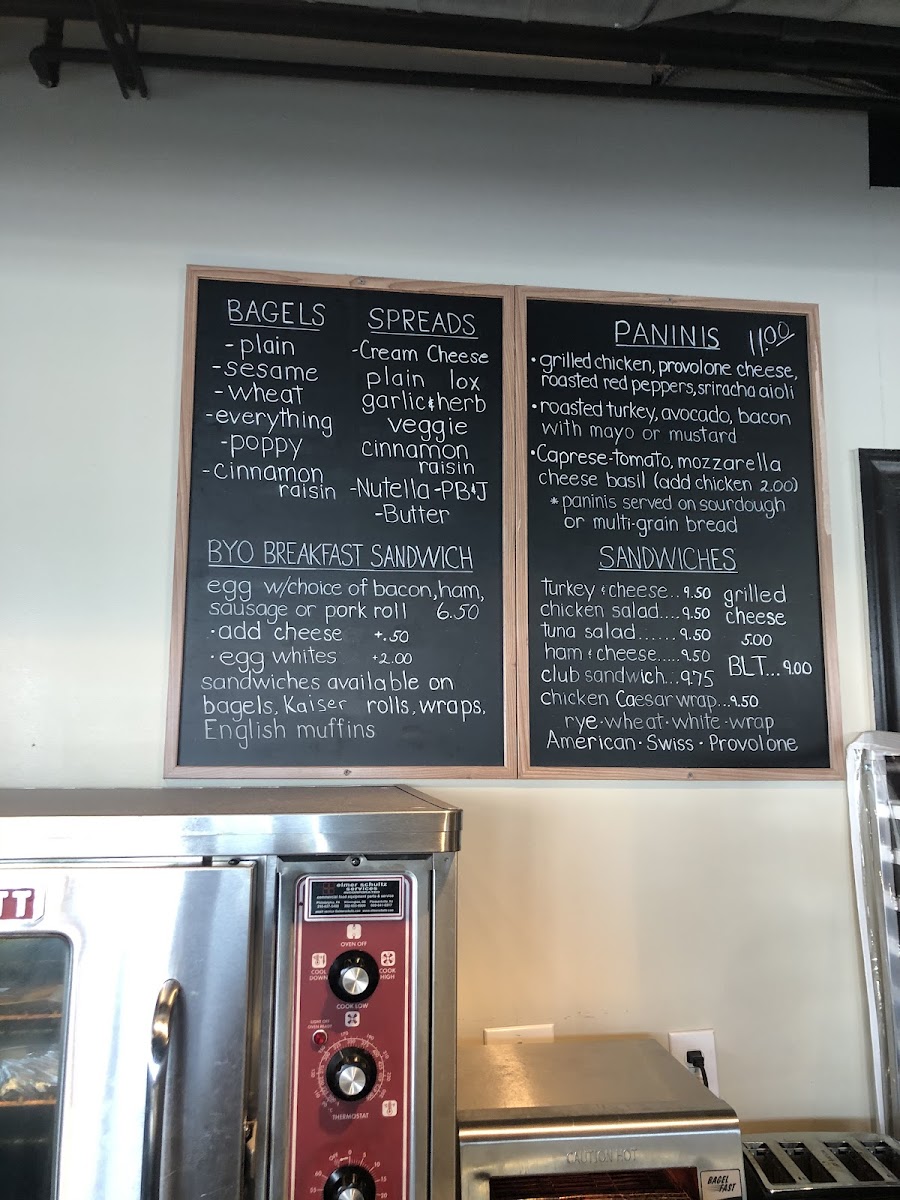 BAGELS
- plain
- sesame
- wheat
- everything
- poppy
- cinnamon
raisin
SPREADS
- Cream Cheese
plain lox
garlic & herb
veggie
cinnamon
raisin
- Nutella - PB&J
- Butter
BYO BREAKFAST SANDWICH
egg w/choice of bacon, ham,
sausage or pork roll 6.50
· add cheese +.50
· egg whites +2.00
sandwiches available on
bagels, Kaiser rolls, wraps,
English muffins
PANINIS 11.00
• grilled chicken, provolone cheese,
roasted red peppers, sriracha aioli
• roasted turkey, avocado, bacon
with mayo or mustard
• Caprese-tomato, mozzarella
cheese basil (add chicken 2.00)
* paninis served on sourdough
or multi-grain bread
SANDWICHES
turkey & cheese... 9.50
chicken salad.... 9.50
tuna salad...... 9.50
ham & cheese..... 9.50
club sandwich... 9.75
chicken Caesar wrap... 9.50
grilled
cheese
5.00
BLT... 9.00
rye · wheat · white · wrap
American · Swiss · Provolone
TT
elmer schultz
services
OVEN OFF
COOL
DOWN
COOK
HIGH
COOK LOW
THERMOSTAT
CAUTION HOT
BAGEL
FAST